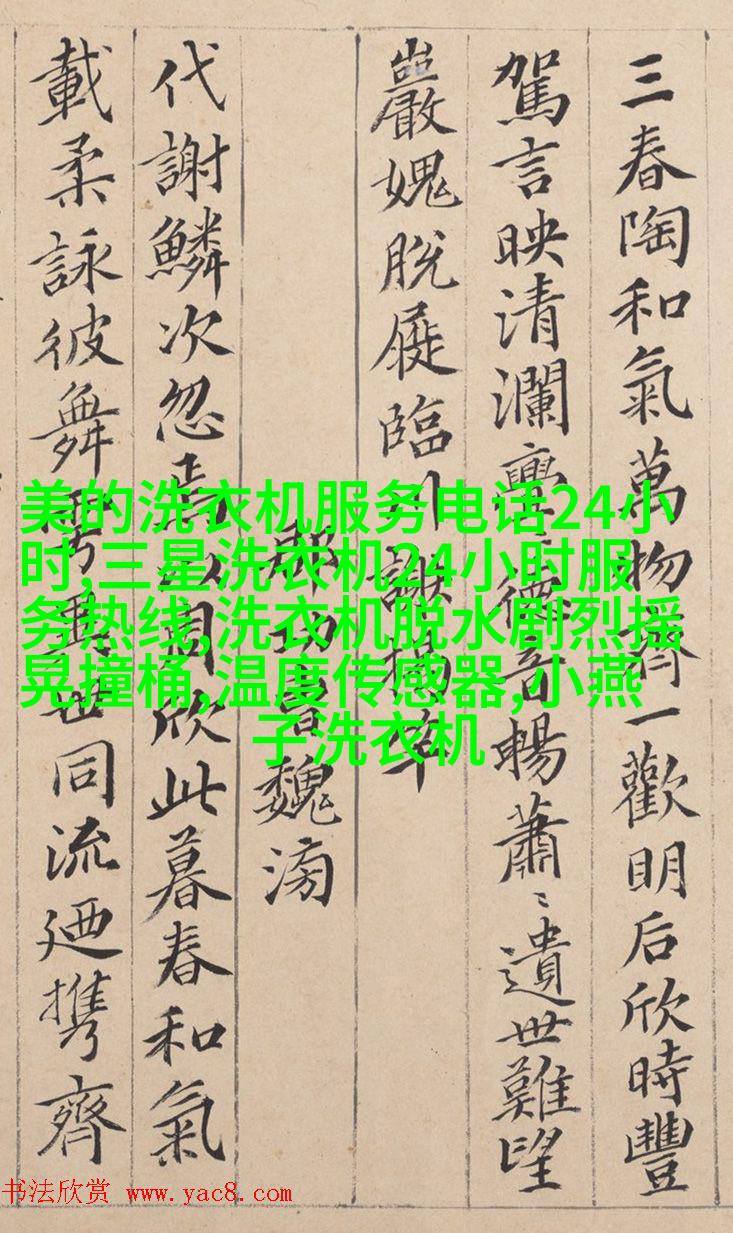 三春陶和氣萬物齊一歡明后欣時豐
駕言映清瀾亹〻德音暢蕭〻遺世難望
巖愧脫屣臨川謝揭竿
郡功曹魏滂
代謝鱗次忽焉以周欣此暮春和氣
載柔詠彼舞雩異世同流廼攜齊
美的洗衣机服务电话24小
时,三星洗衣机24小时服
务热线,洗衣机脱水剧烈摇
晃撞桶,温度传感器,小燕
子洗衣机
书法欣赏 www.yac8.com